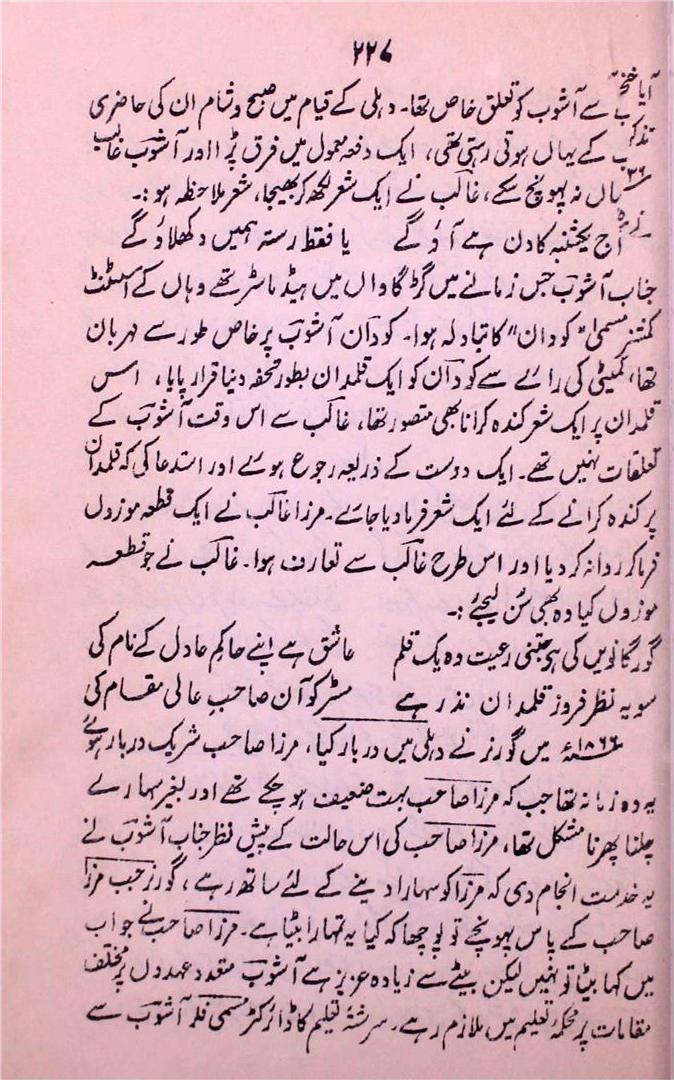 ۲۲۷
سے آشوب کو تعلق خاص تھا۔ دہلی کے قیام میں صبح و شام ان کی حاضری
کے یہاں ہوتی رہتی تھی، ایک دفعہ معمول میں فرق پڑا اور آشوب غالب
نہ پہونچ سکے، غالب نے ایک شعر لکھ کر بھیجا، شعر ملاحظہ ہو :۔
آج یکشنبہ کا دن ہے آؤ گے یا فقط رستہ ہمیں دکھلاؤ گے
جناب آشوب جس زمانے میں گڑگاواں میں ہیڈ ماسٹر تھے وہاں کے اسسٹنٹ
کمشنر مسمیٰ "کودان" کا تبادلہ ہوا۔ کودان آشوب پر خاص طور سے مہربان
تھا، کمیٹی کی رائے سے کودان کو ایک قلمدان بطور تحفہ دنیا قرار پایا، اس
قلمدان پر ایک شعر کندہ کرانا بھی متصور تھا، غالب سے اس وقت آشوب کے
تعلقات نہیں تھے۔ ایک دوست کے ذریعہ رجوع ہوئے اور استدعا کی کہ قلمدان
پر کندہ کرانے کے لئے ایک شعر فرما دیا جائے۔ مرزا غالب نے ایک قطعہ موزوں
فرما کر روانہ کر دیا اور اس طرح غالب سے تعارف ہوا۔ غالب نے جو قطعہ
موزوں کیا وہ بھی سُن لیجئے :۔
گورگانویں کی ہے جتنی رعیت وہ یک قلم عاشق ہے اپنے حاکمِ عادل کے نام کی
سو یہ نظر فروز قلمدان نذر ہے مسٹر کوآن صاحبِ عالی مقام کی
۱۸۶۶ء میں گورنر نے دہلی میں دربار کیا، مرزا صاحب شریک دربار ہوئے
یہ وہ زمانہ تھا جب کہ مرزا صاحب بہت ضعیف ہو چکے تھے اور بغیر سہارے
چلنا پھرنا مشکل تھا، مرزا صاحب کی اس حالت کے پیش نظر جناب آشوب نے
یہ خدمت انجام دی کہ مرزا کو سہارا دینے کے لئے ساتھ رہے، گورنر جب مرزا
صاحب کے پاس پہونچے تو پوچھا کہ کیا یہ تمہارا بیٹا ہے۔ مرزا صاحب نے جواب
میں کہا بیٹا تو نہیں لیکن بیٹے سے زیادہ عزیز ہے آشوب متعدد عہدوں پر مختلف
مقامات پر محکمۂ تعلیم میں ملازم رہے۔ سررشتۂ تعلیم کا ڈائرکٹر مسمی فلر آشوب سے